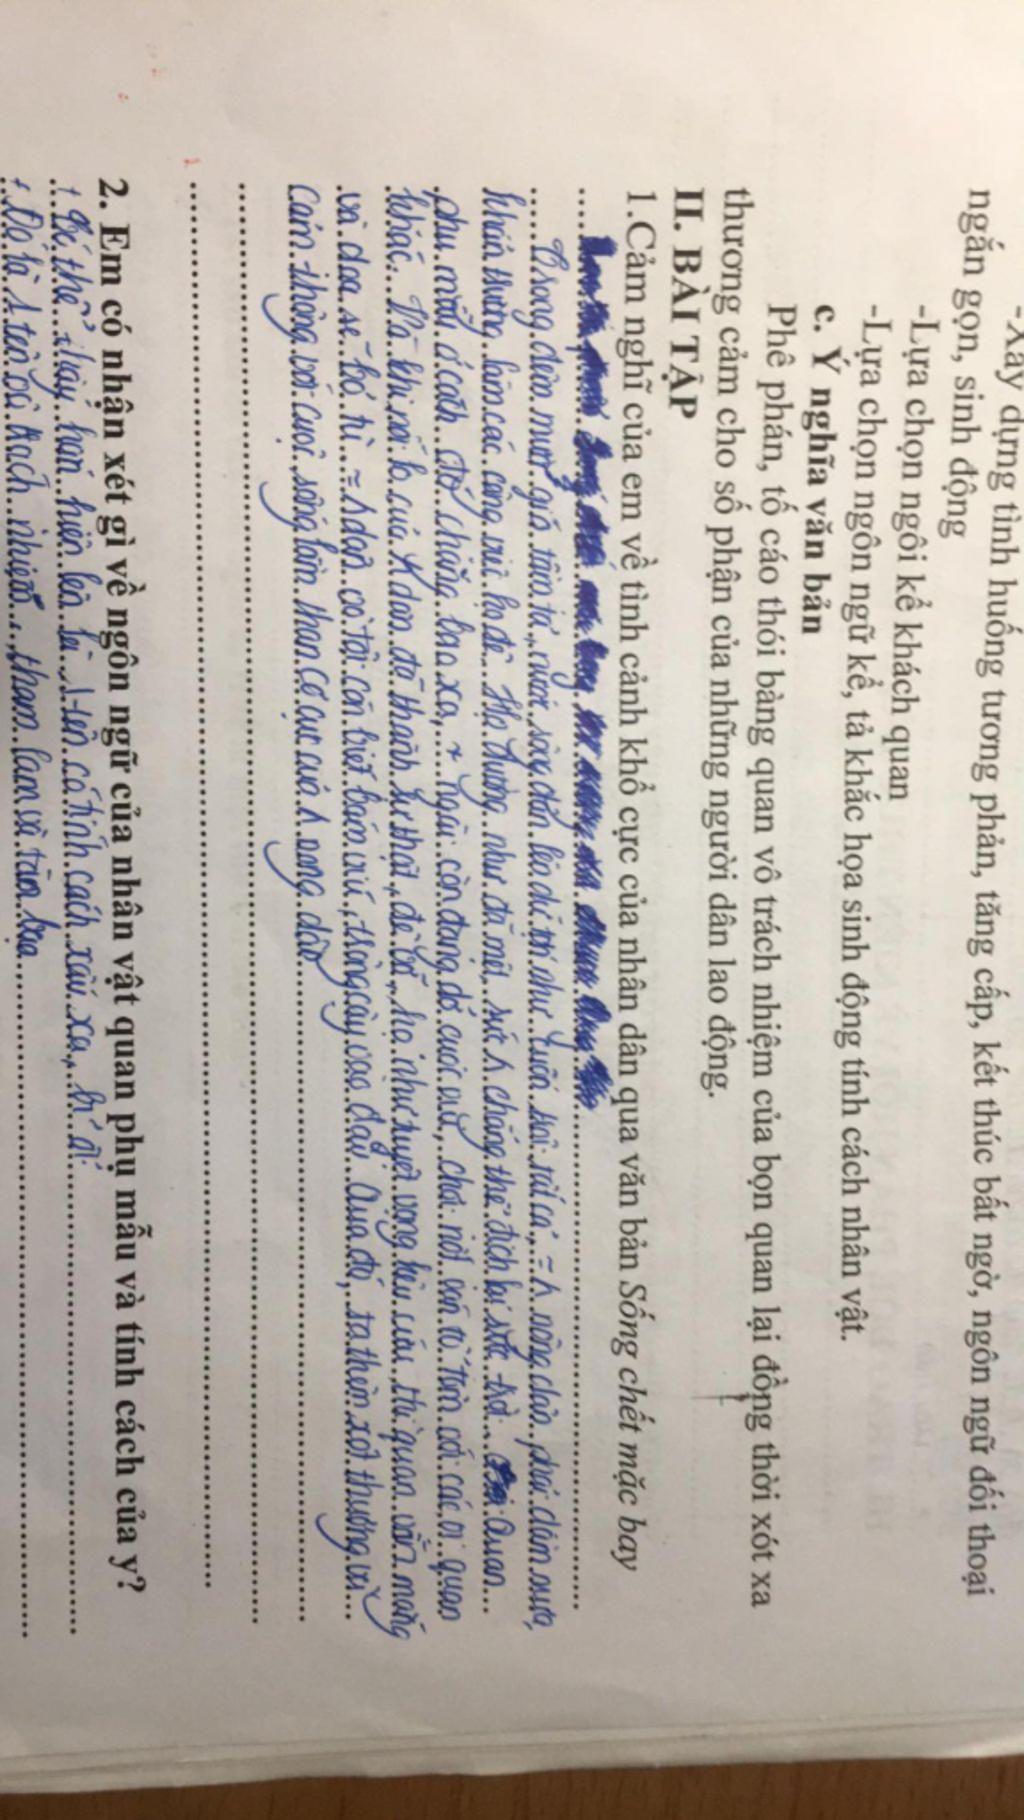 -Xây dựng tình huống tương phản, tăng cấp, kết thúc bất ngờ, ngôn ngữ đối thoại
ngắn gọn, sinh động
-Lựa chọn ngôi kể khách quan
-Lựa chọn ngôn ngữ kể, tả khắc họa sinh động tính cách nhân vật.
c. Ý nghĩa văn bản
Phê phán, tố cáo thói bàng quan vô trách nhiệm của bọn quan lại đồng thời xót xa
thương cảm cho số phận của những người dân lao động.
II. BÀI TẬP
1.Cảm nghĩ của em về tình cảnh khổ cực của nhân dân qua văn bản Sống chết mặc bay
Trong đêm mưa gió tầm tã, nước sông dần kéo dài như cuốn trôi tất cả, nông dân phải dầm mưa,
khẩn trương làm các công việc hộ đê. Họ dường như đã mệt, sức chẳng thể địch lại sức trời. Quan
phụ mẫu ở cách đó chẳng bao xa, ngài còn đang dở cuộc vui, chơi nốt ván tổ tôm với các vị quan
khác. Và khi nỗi lo của đã thành sự thật, đê vỡ, họ như tuyệt vọng kêu cứu thì quan vẫn mắng
và dọa sẽ bỏ tù. Qua đó, ta thêm xót thương và
cảm thông với cuộc sống lầm than cơ cực của ông dân
2. Em có nhận xét gì về ngôn ngữ của nhân vật quan phụ mẫu và tính cách của y?
có tính cách xấu xa, bỉ ổi
+ Đó là 1 tên vô trách nhiệm, tham lam và tàn bạo